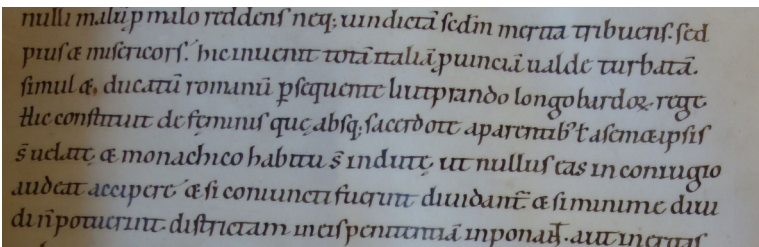 nulli malũ p malo reddens neq; uindictã sedm merita tribuens. sed
pius & misericors. hic inuenit totã italiã puinciã ualde turbatã.
simul &, ducatũ romanũ psequente liutprando longobardoꝝ rege
Hic constituit de feminis quę absq; sacerdote aparentibꝰ ł asem&ipsis
s̃ uelatę & monachico habitu s̃ indutę ut nullus eas in coniugio
audeat accipere & si coniuncti fuerint diuidant̃ & si minime diui
di ñ potuerint. districtam ineis penitentiã inponat̃. aut inertiis